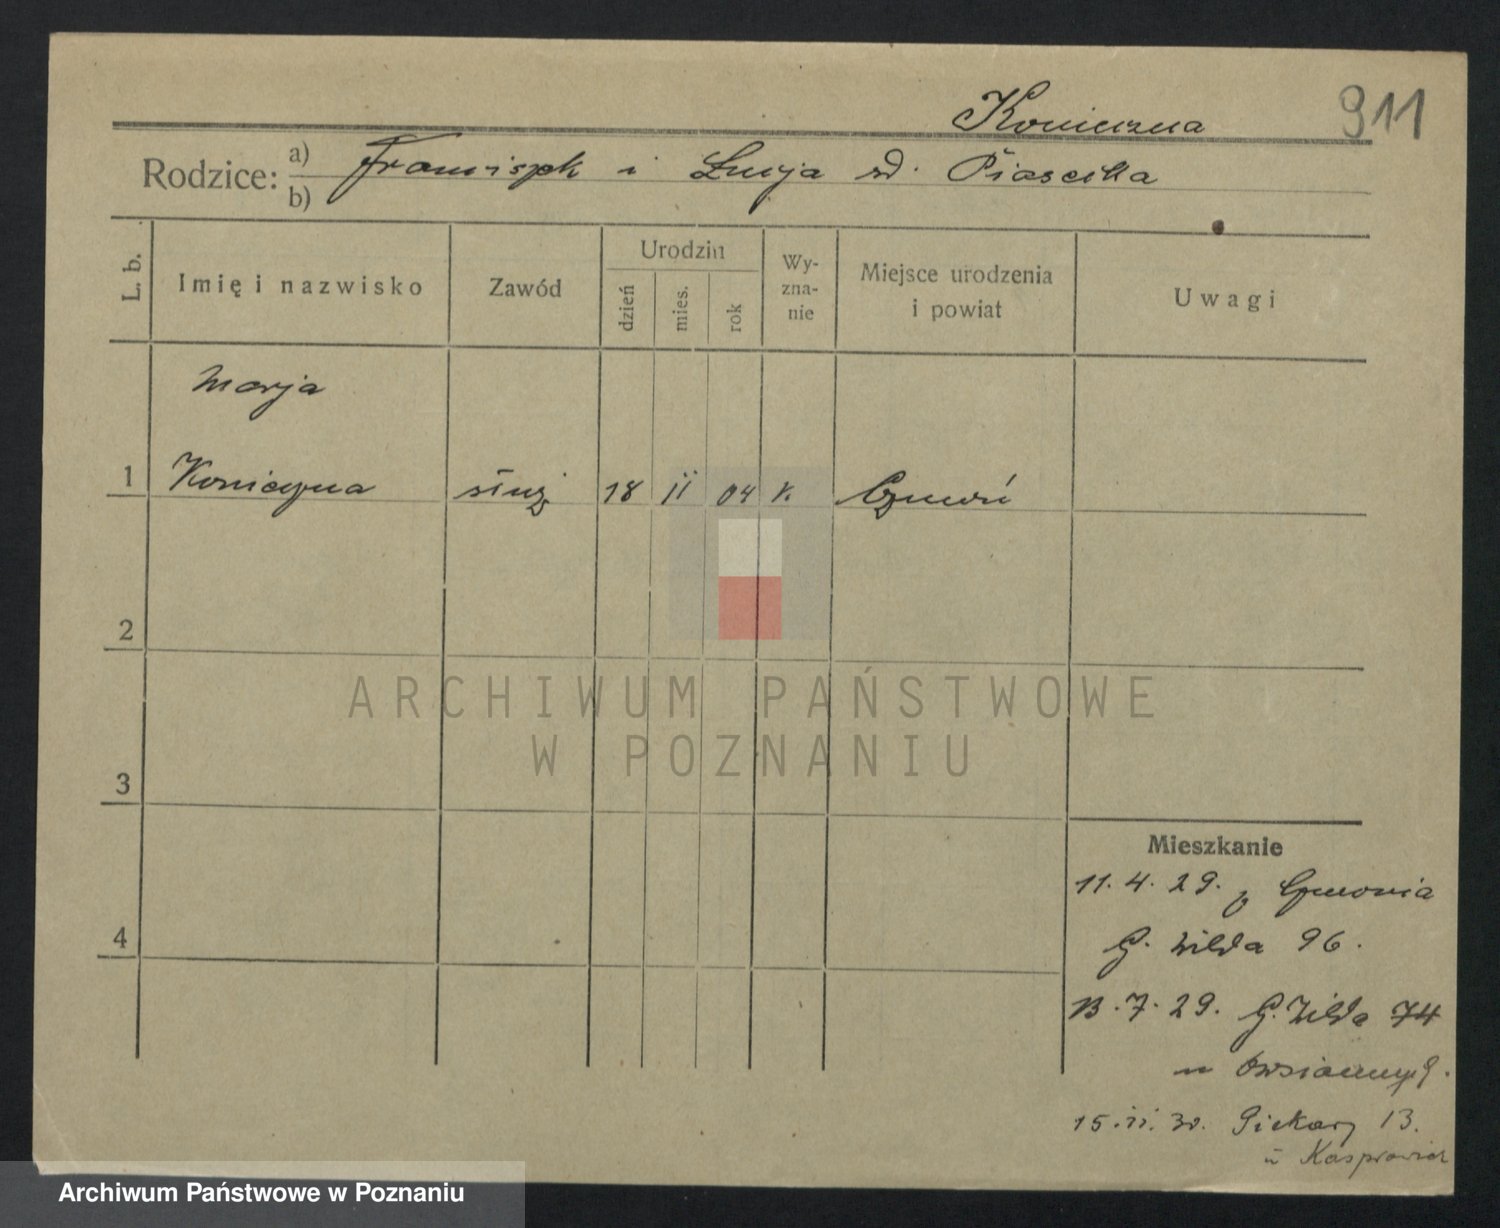 Konieczna
911
Rodzice: a) Franciszek i Lucja rd. Piasecka
b)
L. b.
Imię i nazwisko
Zawód
Urodzin
dzień
mies.
rok
Wy-
zna-
nie
Miejsce urodzenia
i powiat
Uwagi
Marja
1 Konieczna służ 18 11 04 k. Czmoń
2
3
4
Mieszkanie
11. 4. 29. z Czmonia
G. Wilda 96.
13. 7. 29. G. Wilda 74
u
15. 11. 30. Piekary 13.
u Kasprowicz
ARCHIWUM PAŃSTWOWE
W POZNANIU
Archiwum Państwowe w Poznaniu